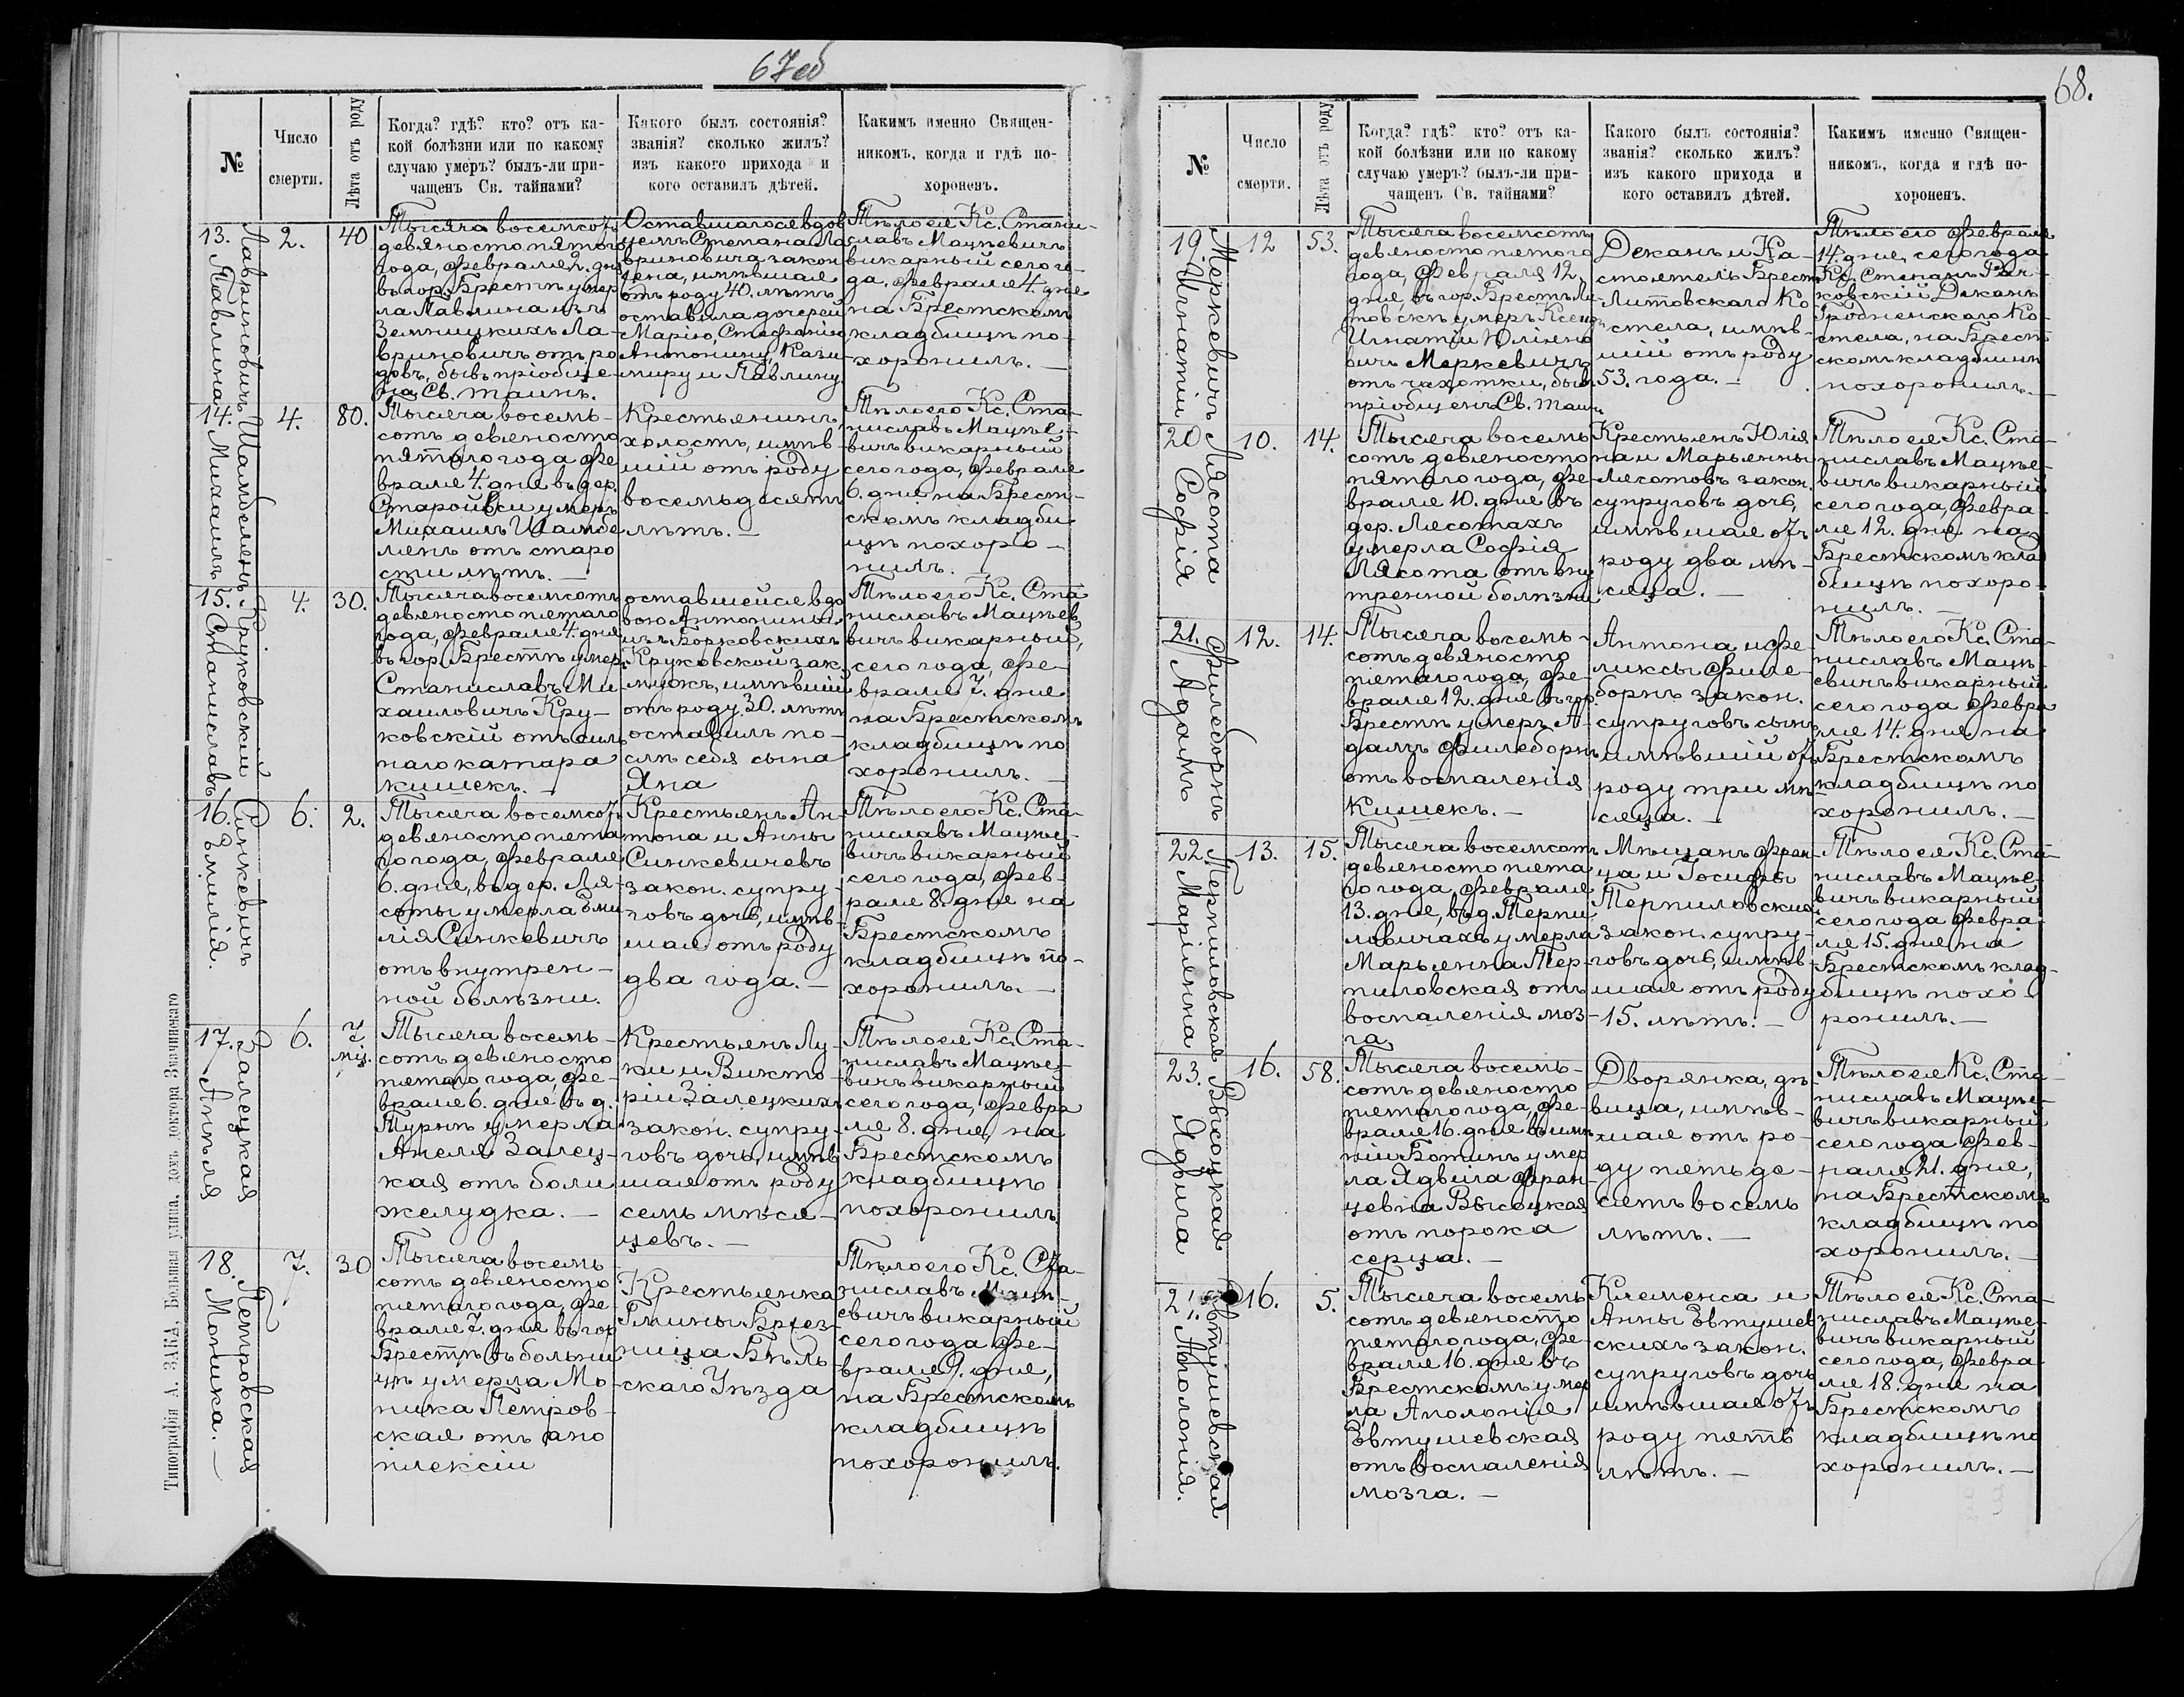 67об
№
Число
смерти.
Лѣта отъ роду
Когда? гдѣ? кто? отъ ка-
кой болѣзни или по какому
случаю умеръ? былъ-ли при-
чащенъ Св. тайнами?
Какого былъ состоянія?
званія? сколько жилъ?
изъ какого прихода и
кого оставилъ дѣтей.
Какимъ именно Священ-
никомъ, когда и гдѣ по-
хороненъ.
13.
Лавриновичъ
Павлина
2.
40
Тысяча восемсотъ
девяносто пятого
года, февраля 2. дня
въ гор. Брестѣ умер
ла Павлина изъ
Земницкихъ Ла-
вриновичъ отъ ро
довъ, бывъ пріобще-
на Св. таинъ.
Оставшагося вдов
цемъ Степана Ла
вриновича закон
жена, имѣвшая
отъ роду 40. лѣтъ
оставила дочерей
Марію, Стефанію
Антонину, Кази-
миру и Павлину.
Тѣло ея Кс. Стани-
славъ Мацѣевичъ
викарный сего го-
да, февраля 4. дня
на Брестскомъ
кладбищѣ по-
хоронилъ. —
14.
Шамбеленъ
Михаилъ
4.
80.
Тысяча восемь-
сотъ девяносто
пятого года фе
враля 4. дня въ дер.
Старойвси умеръ
Михаилъ Шамбе
ленъ отъ старо
сти лѣтъ. —
Крестьянинъ,
холостъ, имѣв-
шій отъ роду
восемьдесятъ
лѣтъ. —
Тѣло его Кс. Ста-
ниславъ Мацѣе-
вичъ викарный
сего года, февраля
6. дня на Брест-
скомъ кладби
щѣ похоро-
нилъ. —
15.
Круковскій
Станиславъ
4.
30.
Тысяча восемсотъ
девяносто пятого
года, февраля 4. дня
въ гор. Брестѣ умер.
Станиславъ Ми
хаиловичъ Кру-
ковскій отъ силь
наго катара
кишекъ. —
оставшейся вдо
вою Антонины
изъ Борковскихъ
Круковской зак.
мужъ, имѣвшій
отъ роду 30. лѣтъ
оставилъ по-
слѣ себя сына
Яна
Тѣло его Кс. Ста
ниславъ Мацѣев
вичъ викарный,
сего года, фе-
враля 7. дня
на Брестскомъ
кладбищѣ по
хоронилъ. —
16.
Синкевичъ
Эмилія.
6.
2.
Тысяча восемсотъ
девяносто пята
го года, февраля
6. дня, въ дер. Ля-
соты умерла Эми
лія Синкевичъ
отъ внутрен-
ной болѣзни.
Крестьянъ Ан-
тона и Анны
Синкевичевъ
закон. супру-
говъ дочь, имѣв-
шая отъ роду
два года. —
Тѣло его Кс. Ста-
ниславъ Мацѣе-
вичъ викарный
сего года, фев-
раля 8. дня на
Брестскомъ
кладбищѣ по-
хоронилъ. —
17.
Залецкая
Анеля
6.
7
мѣс.
Тысяча восемь-
сотъ девяносто
пятаго года, фе-
враля 6. дня въ д.
Турнѣ умерла
Анеля Залец-
кая отъ боли
желудка. —
Крестьянъ Лу-
ки и Викто-
ріи Залецкихъ
закон. супру-
говъ дочь, имѣв
шая отъ роду
семь мѣся-
цевъ. —
Тѣло ея Кс. Ста-
ниславъ Мацѣе-
вичъ викарный
сего года, февра
ля 8. дня, на
Брестскомъ
кладбищѣ
похоронилъ
18.
Петровская
Моника. —
7.
30
Тысяча восемь
сотъ девяносто
пятаго года, фе-
враля 7. дня въ гор
Брестѣ въ больни
цѣ умерла Мо
ника Петров-
ская отъ апо
плексіи
Крестьянка
Гмины Брез-
ница Бѣль-
скаго Уѣзда
Тѣло его Кс. Ста-
ниславъ Мацѣ-
евичъ викарный
сего года фе-
враля 9. дня,
на Брестскомъ
кладбищѣ
похоронилъ.
Типографія А. ЗАКА, Большая улица, домъ доктора Значинскаго
68.
№
Число
смерти.
Лѣта отъ роду
Когда? гдѣ? кто? отъ ка-
кой болѣзни или по какому
случаю умеръ? былъ-ли при-
чащенъ Св. тайнами?
Какого былъ состоянія?
званія? сколько жилъ?
изъ какого прихода и
кого оставилъ дѣтей.
Какимъ именно Священ-
никомъ, когда и гдѣ по-
хороненъ.
19.
Меркевичъ
Игнатій
12
53.
Тысяча восемсотъ
девяносто пятого
года, февраля 12,
дня, въ гор. Брестъ Ли-
товскѣ умеръ Ксендз
Игнатій Юліано
вичъ Меркевичъ
отъ чахотки, бывъ
пріобщенъ Св. таин
Деканъ и На-
стоятель Брест
Литовскаго Ко-
стела, имѣв-
шій отъ роду
53. года. —
Тѣло его февраля
14. дня, сего года
Кс. Степанъ
Деканъ
Гродненскаго Ко-
стела, на Брест
скомъ кладбищѣ
похоронилъ. —
20
Лясота
Софія
10.
14.
Тысяча восемь
сотъ девяносто
пятаго года, фе-
враля 10. дня въ
дер. Лясотахъ
умерла Софія
Лясота отъ вну
тренной болѣзни
Крестьянъ Юлія
на и Марьянны
Лясотовъ закон.
супруговъ дочь,
имѣвшая отъ
роду два мѣ-
сяца. —
Тѣло ея Кс. Ста-
ниславъ Мацѣе-
вичъ викарный
сего года, февра-
ля 12. дня на
Брестскомъ кла
бищѣ похоро-
нилъ. —
21.
Филеборнъ
Адамъ
12.
14.
Тысяча восемь-
сотъ девяносто
пятаго года, фе-
враля 12. дня въ гор.
Брестѣ умеръ А-
дамъ Филеборнъ
отъ воспаленія
кишекъ. —
Антона и Фе-
ликсы Филе-
борнъ закон.
супруговъ сынъ
имѣвшій отъ
роду три мѣ-
сяца. —
Тѣло его Кс. Ста-
ниславъ Мацѣ-
евичъ викарный
сего года февра
ля 14. дня на
Брестскомъ
кладбищѣ по
хоронилъ. —
22.
Терпиловская
Маріянна
13.
15.
Тысяча восемсотъ
девяносто пята
го года, февраля
13. дня, въ д. Терпи
ловичахъ умерла
Марьянна Тер-
пиловская отъ
воспаленія моз-
га
Мѣщанъ Фран
ца и Іосифы
Терпиловскихъ
закон. супру-
говъ дочь, имѣв-
шая отъ роду
15. лѣтъ. —
Тѣло ея Кс. Ста-
ниславъ Мацѣе-
вичъ викарный
сего года февра-
ля 15. дня на
Брестскомъ клад-
бищѣ похо-
ронилъ. —
23.
Высоцкая
Ядвига
16.
58.
Тысяча восемь-
сотъ девяносто
пятаго года, фе-
враля 16. дня въ имѣ
ніи Ботинѣ умер
ла Ядвига Фран-
цевна Высоцкая
отъ порока
серца. —
Дворянка, дѣ-
вица, имѣв-
шая отъ ро-
ду пятьде-
сятъ восемь
лѣтъ. —
Тѣло ея Кс. Ста-
ниславъ Мацѣе-
вичъ викарный
сего года фев-
раля 21. дня,
на Брестскомъ
кладбищѣ по
хоронилъ. —
24.
Евтушевская
Аполонія.
16.
5.
Тысяча восемь
сотъ девяносто
пятаго года, фе-
враля 16. дня въ
Брестскомъ умер
ла Аполонія
Евтушевская
отъ воспаленія
мозга. —
Клеменса и
Анны Евтушев
скихъ закон.
супруговъ дочь
имѣвшая отъ
роду пять
лѣтъ. —
Тѣло ея Кс. Ста-
ниславъ Мацѣе-
вичъ викарный
сего года, февра-
ля 18. дня на
Брестскомъ
кладбищѣ по
хоронилъ. —